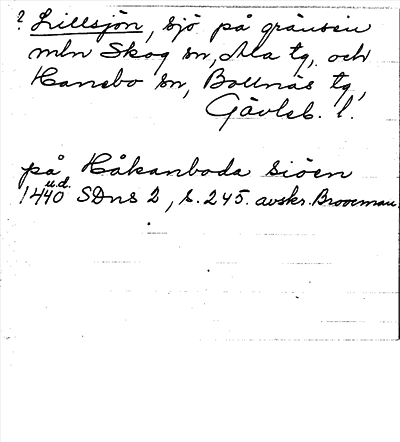 ? Lillsjön, sjö på gränsen
mln Skog sn, Ala tg, och
Hanebo sn, Bollnäs tg,
Gävleb. l.
på Håkanboda siöen
u.d.
1440 SDns 2, s. 245. avskr. Brooeman.